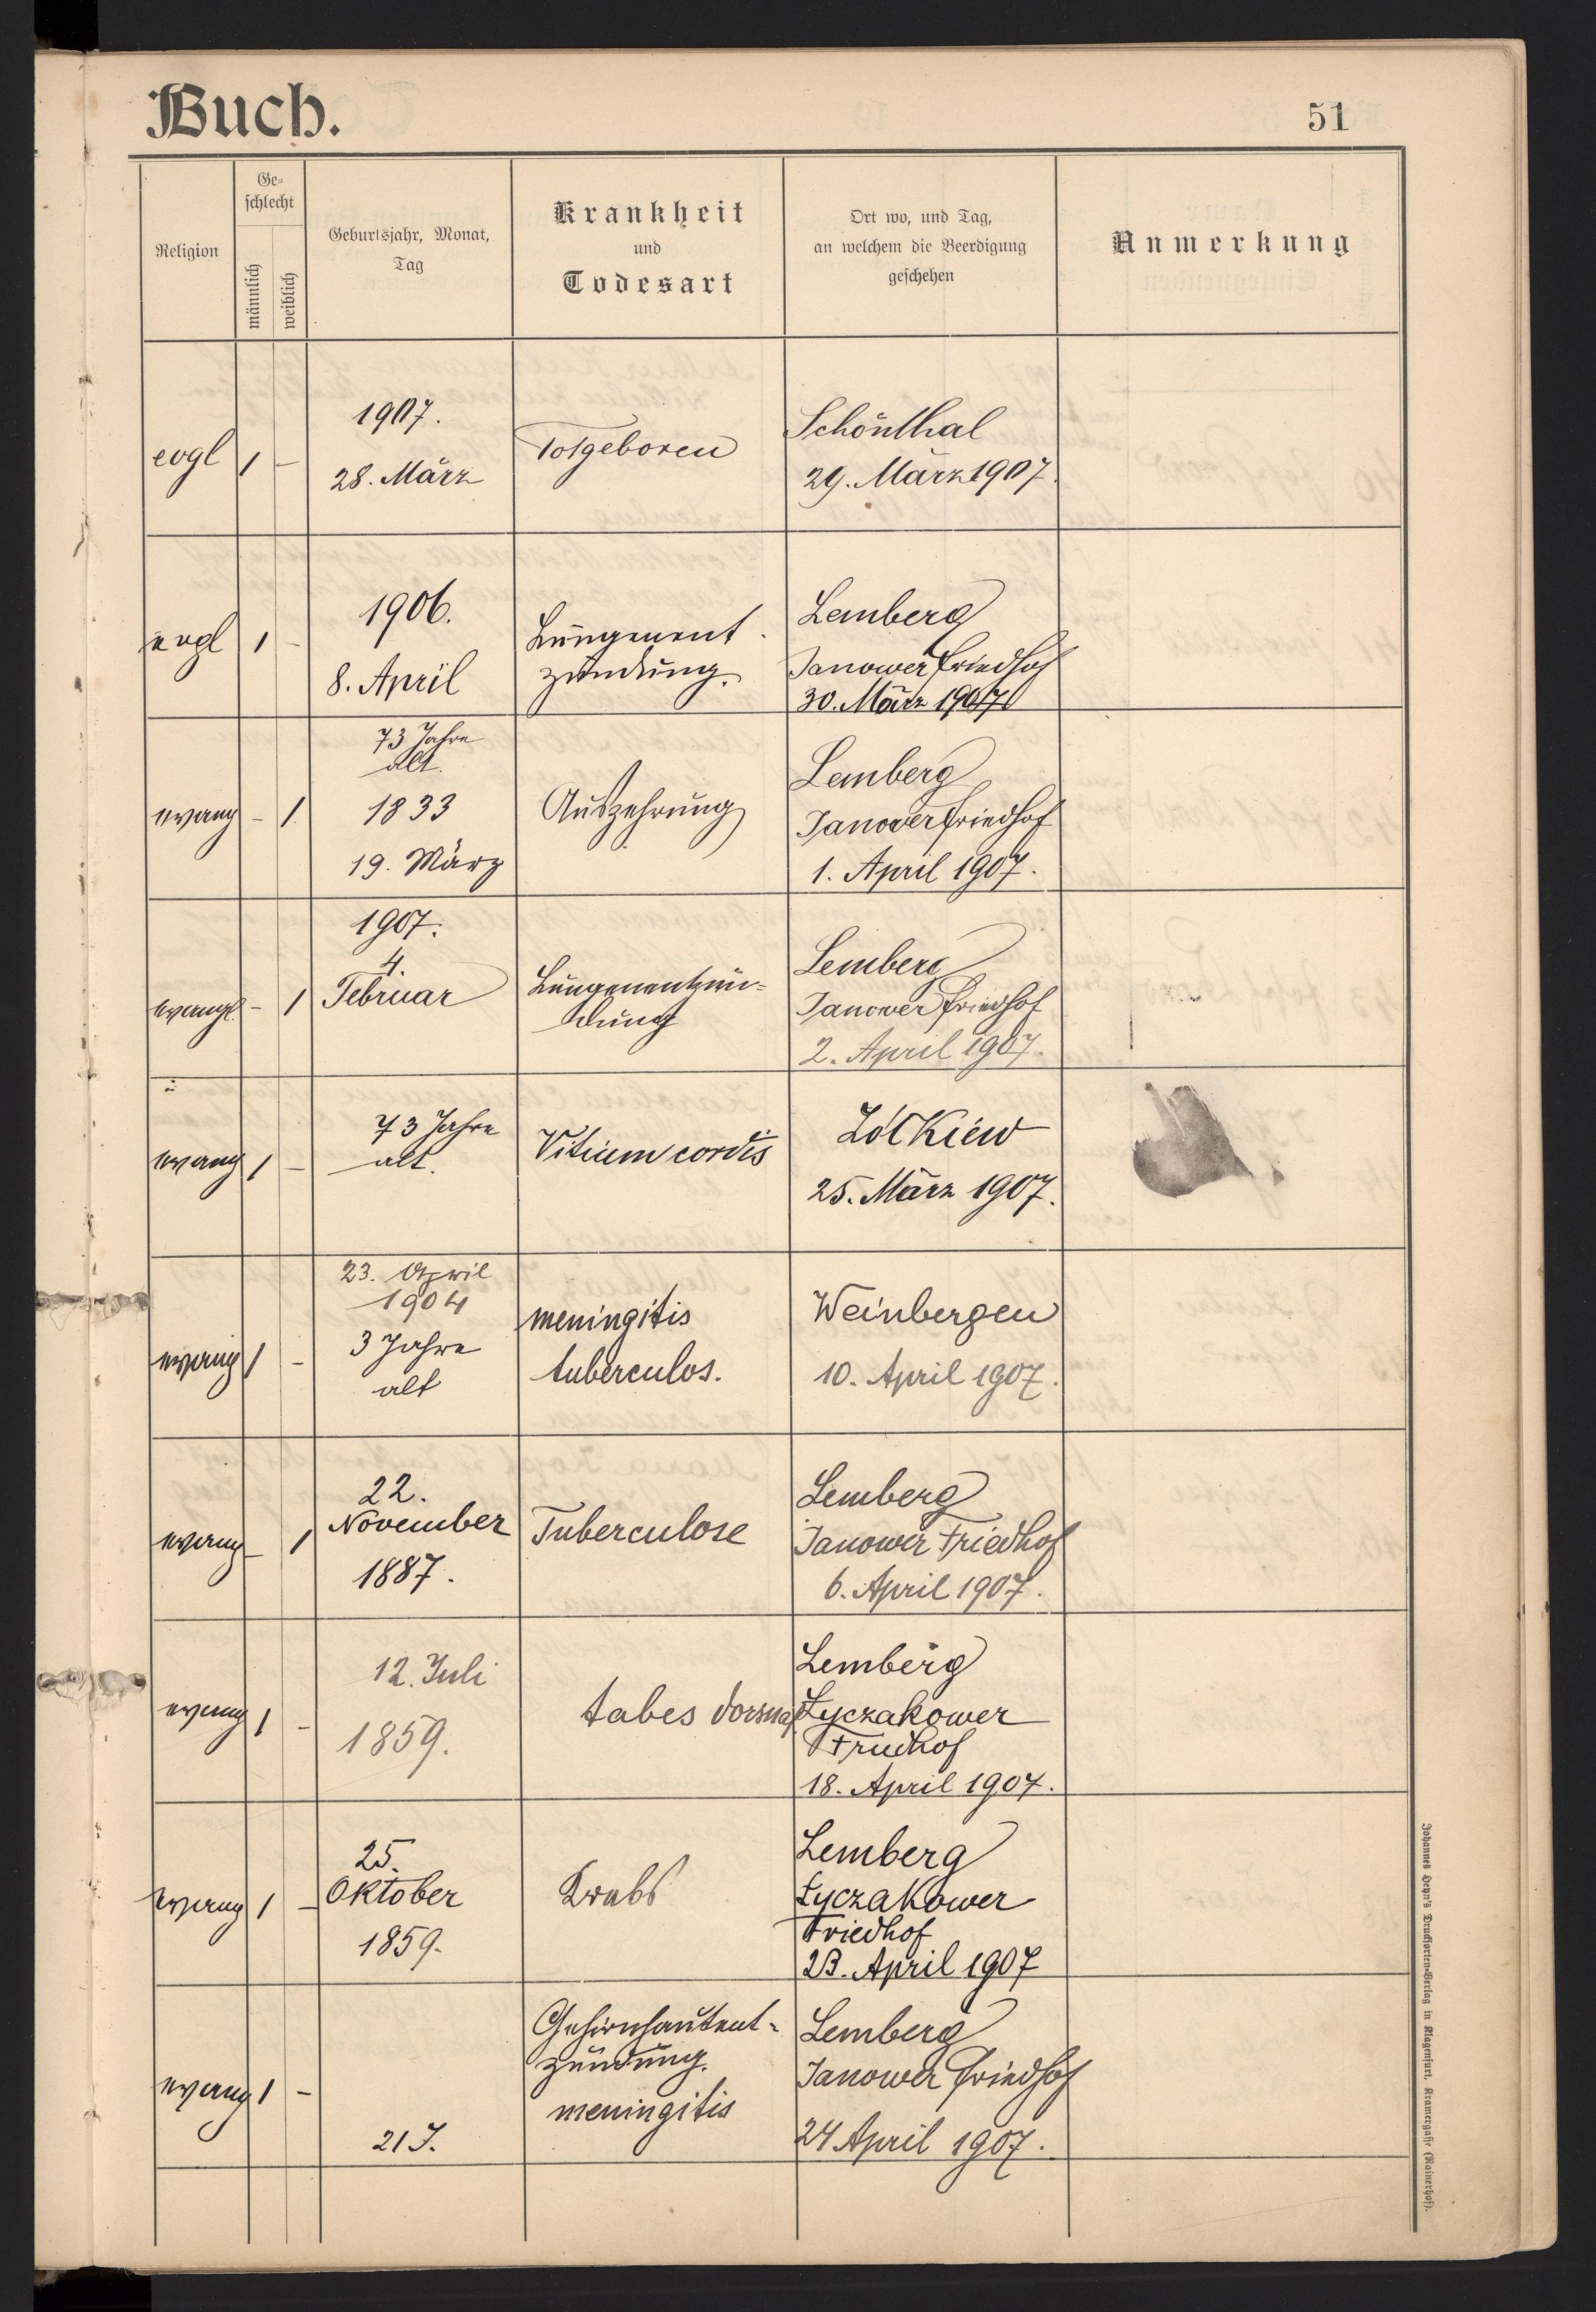 Buch.
51
Religion
Ge-
schlecht
männlich
weiblich
Geburtsjahr, Monat,
Tag
Krankheit
und
Todesart
Ort wo, und Tag,
an welchem die Beerdigung
geschehen
Anmerkung
evgl 1 -
1907.
28. März
Totgeboren
Schönthal
29. März 1907.
evgl 1 -
1906.
8. April
Lungenent
zündung.
Lemberg
Janower Friedhof
30. März 1907
evang - 1.
73 Jahre
alt.
1833
19. März
Auszehrung
Lemberg
Janower Friedhof
1. April 1907.
evangl - 1
1907.
4.
Februar
Lungenentzün-
dung
Lemberg
Janower Friedhof
2. April 1907.
evang 1 -
73 Jahre
alt.
Vitium cordis
Żółkiew
25. März 1907.
evang 1 -
23. April
1904
3 Jahre
alt
meningitis
tuberculos.
Weinbergen
10. April 1907.
evang - 1
22.
November
1887.
Tuberculose
Lemberg
Janower Friedhof
6. April 1907.
evang 1 -
12. Juli
1859.
tabes dorsual
Lemberg
Łyczakower
Friedhof
18. April 1907.
evang 1 -
25.
Oktober
1859.
Krebs
Lemberg
Łyczakower
Friedhof
23. April 1907
evang 1 -
21 J.
Gehirnhautent-
zündung.
meningitis
Lemberg
Janower Friedhof
24 April 1907.
Johannes Heyn's Drucksorten-Verlag in Klagenfurt, Kramergasse (Rainerhof).